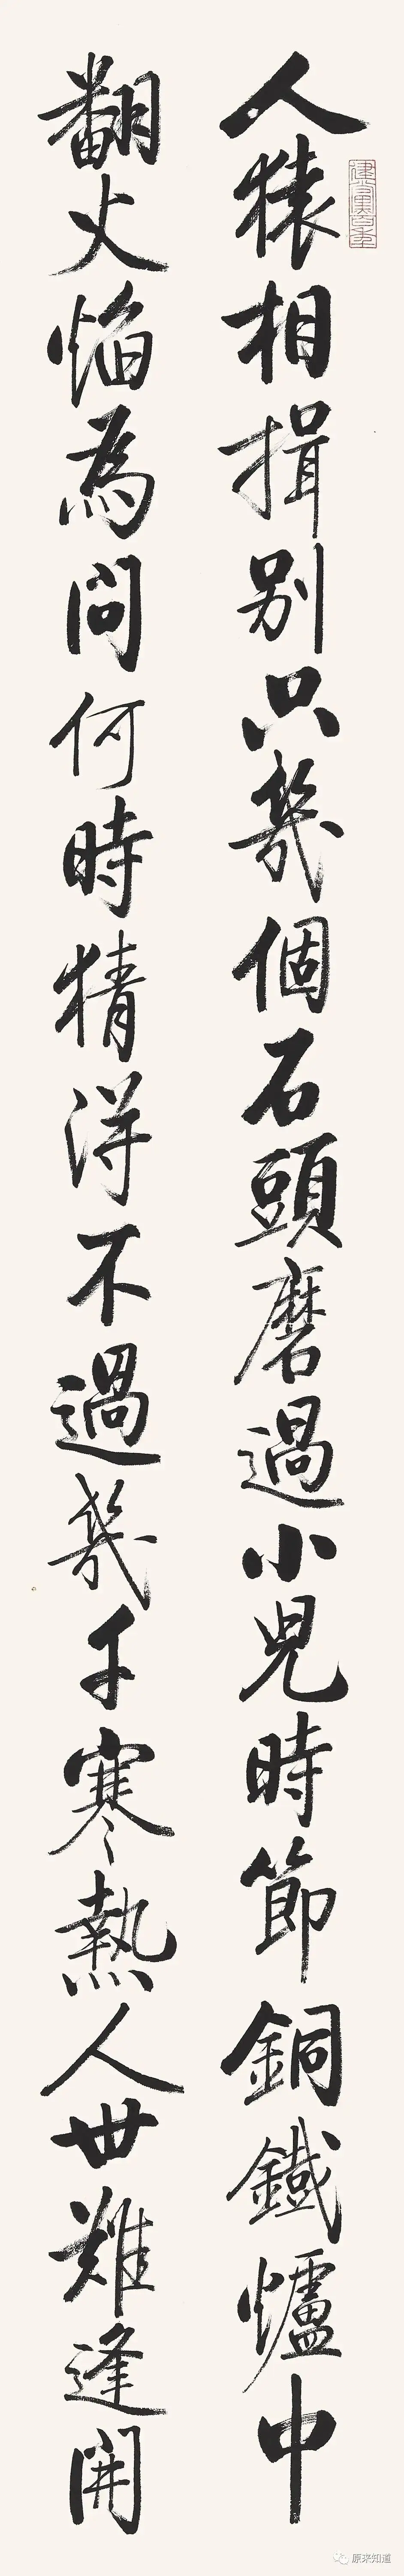 建黨百年
人猿相揖別只幾個石頭磨過小兒時節銅鐵爐中
翻火焰為問何時猜得不過幾千寒熱人世難逢開
原来知道